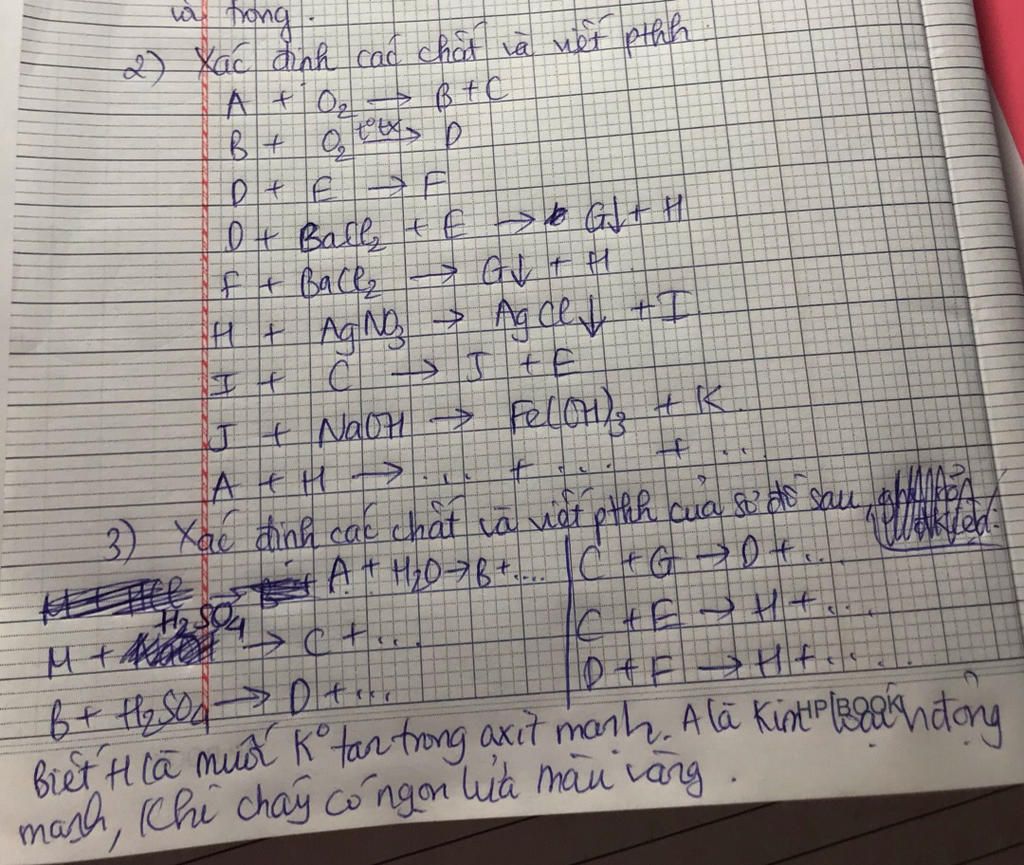 và trong.
2) Xác định các chất và viết pthh
A + O₂ → B + C
B + O₂ t° tx→ D
D + E → F
D + BaCl₂ + E → G↓ + H
F + BaCl₂ → G↓ + H
H + AgNO₃ → AgCl↓ + I
I + C → J + E
J + NaOH → Fe(OH)₃ + K
A + H → ... + ... + ...
3) Xác định các chất và viết pthh của sơ đồ sau
A + H₂O → B + ....
M + H₂SO₄ → C + ...
B + H₂SO₄ → D + ...
C + G → D + ...
C + E → H + ...
D + F → H + .....
Biết H là muối K° tan trong axit mạnh. A là Kim loại hđộng
mạnh, Khi cháy có ngọn lửa màu vàng.
HP BOOK